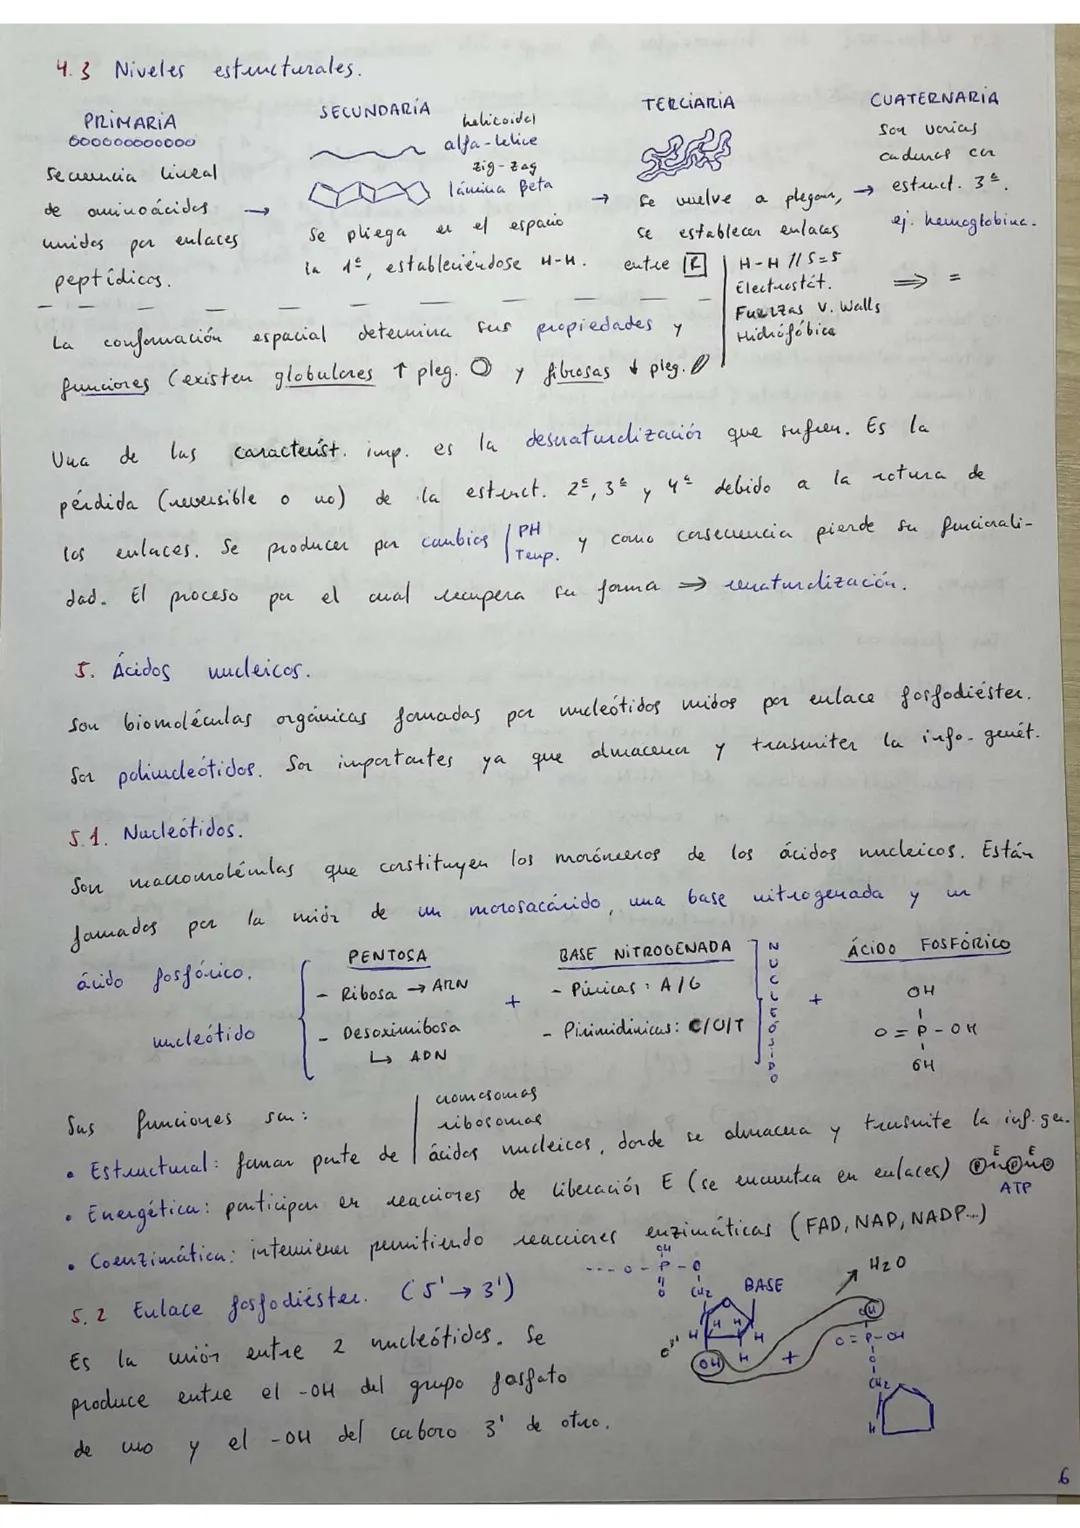 4.3 Niveles estructurales.
PRIMARIA
Secuencia lineal
de aminoácidos →
unidos por enlaces
peptídicos.
SECUNDARIA
helicoidal
alfa-hélice
zig-zag
lámina Beta
Se pliega en el espacio
la 1ª, estableciéndose H-H.
→
TERCIARIA
Se vuelve a plegar,
se establecen enlaces
entre R
H-H // S=S
Electrostát.
Fuerzas V. Walls
Hidrófóbica
→
CUATERNARIA
Son varias
cadenas con
estruct. 3ª.
ej. hemoglobina.
⇒ =
La conformación espacial determina sus propiedades y
funciones (existen globulares ↑ pleg. y fibrosas ↓ pleg.
Una de las característ. imp. es la desnaturalización que sufren. Es la
pérdida (reversible o no) de la estruct. 2ª, 3ª y 4ª debido a la rotura de
los enlaces. Se producen por cambios PH Temp. y como consecuencia pierde su funcionali-
dad. El proceso por el cual recupera su forma ⇒ renaturalización.
5. Ácidos nucleicos.
Son biomoléculas orgánicas formadas por nucleótidos unidos por enlace fosfodiéster.
Son polinucleótidos. Son importantes ya que almacenan y trasmiten la info. genét.
5.1. Nucleótidos.
Son macromoléculas que constituyen los monómeros de los ácidos nucleicos. Están
formados por la unión de un monosacárido, una base nitrogenada y un
ácido fosfórico.
nucleótido
PENTOSA
- Ribosa → ARN
- Desoxirribosa
↳ ADN
+
BASE NITROGENADA
- Púricas: A/G
- Pirimidínicas: C/U/T
NUCLEÓSIDO
+
ÁCIDO FOSFÓRICO
OH
O = P - OH
OH
Sus funciones son:
cromosomas
ribosomas
• Estructural: forman parte de ácidos nucleicos, donde se almacena y trasmite la inf. gen.
• Energética: participan en reacciones de liberación E (se encuentra en enlaces) P E P E P
ATP
• Coenzimática: intervienen permitiendo reacciones enzimáticas (FAD, NAP, NADP...)
5.2 Enlace fosfodiéster. (5' → 3')
Es la unión entre 2 nucleótidos. Se
produce entre el -OH del grupo fosfato
de uno y el -OH del carbono 3' de otro.
OH
--- O - P - O
O
CH2
BASE
O
H H H H
3'
OH H
+
H2O
OH
O = P - OH
O
CH2
H
6